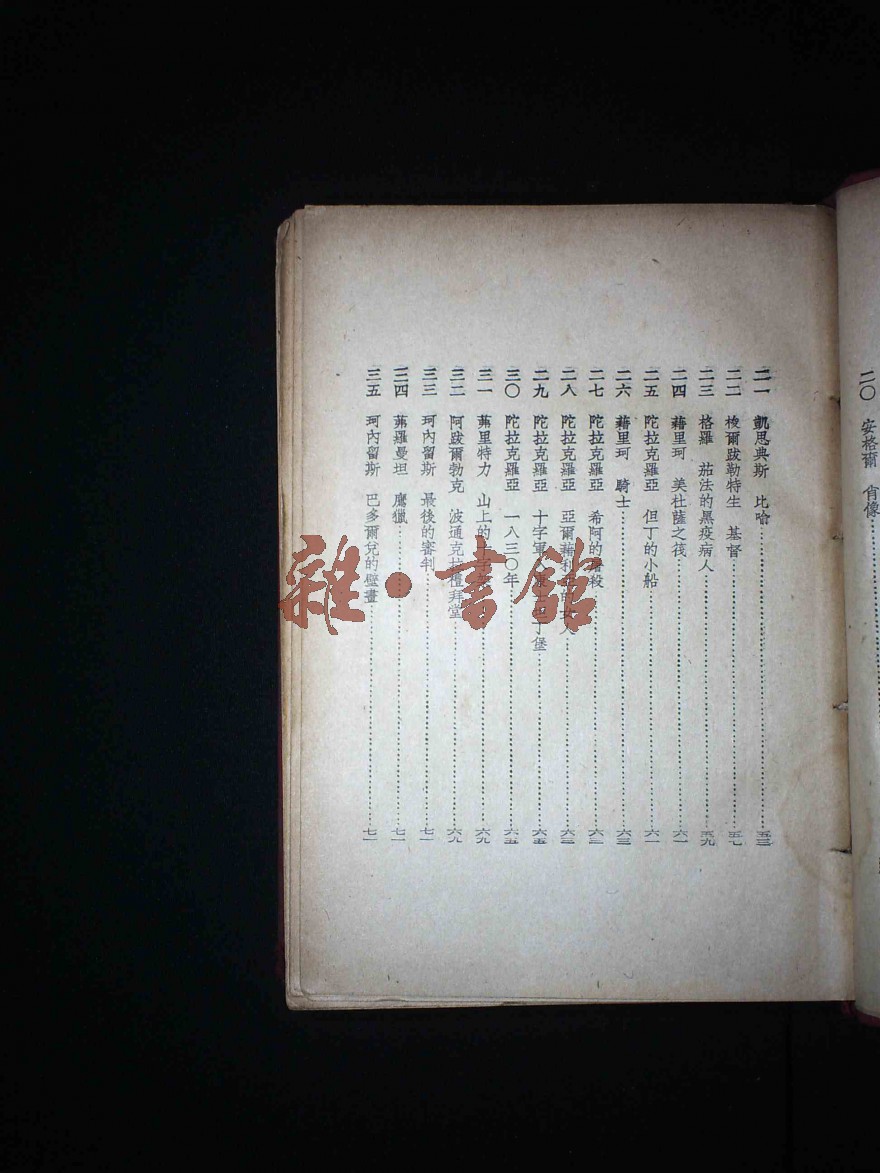 二〇 安格爾 肖像
二一 凱思典斯 比喻 五三
二二 梭爾跋勒特生 基督 五七
二三 格羅 茄法的黑疫病人 五九
二四 藉里珂 美杜薩之筏 六一
二五 陀拉克羅亞 但丁的小船 六一
二六 藉里珂 騎士 六三
二七 陀拉克羅亞 希阿的 殺 六三
二八 陀拉克羅亞 亞爾藉利 的女人 六三
二九 陀拉克羅亞 十字軍 丁堡 六五
三〇 陀拉克羅亞 一八三〇年 六五
三一 茀里特力 山上的十字架 六九
三二 阿跋爾勃克 波通克拉禮拜堂 六九
三三 珂內留斯 最後的審判 七一
三四 茀羅曼坦 鷹獵 七一
三五 珂內留斯 巴多爾兌的壁畫 七一
雜·書館